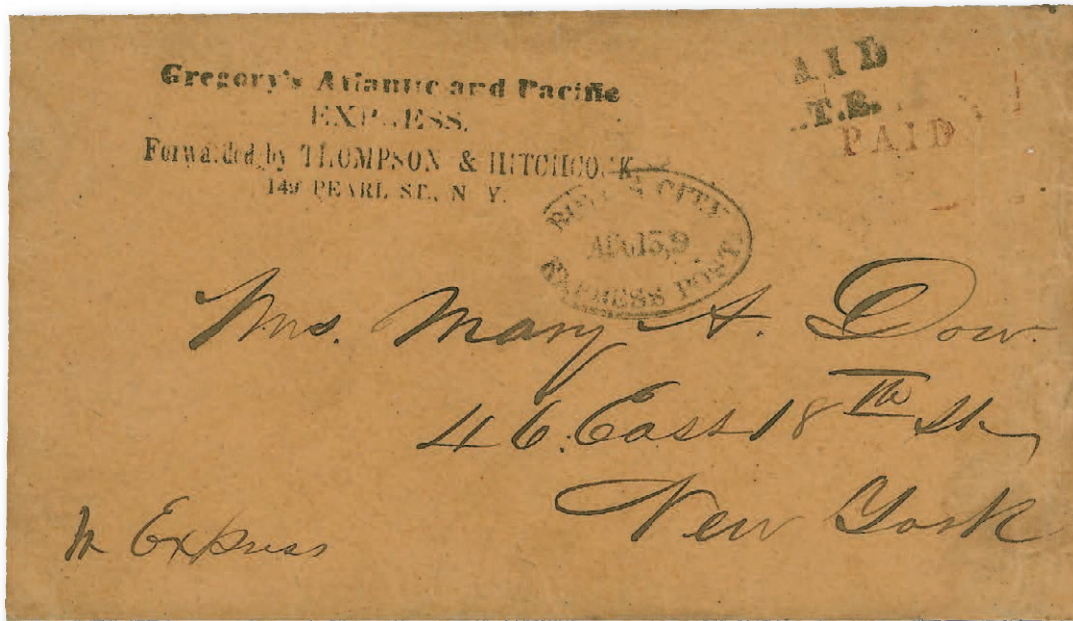 Gregory's Atlantic and Pacific
EXPRESS.
Forwarded by THOMPSON & HITCHCOCK
149 PEARL ST., N. Y.
AID
T.B.
PAID
CITY
EXPRESS POST
Mrs. Mary A. Dow.
46. East 18th St.
New York
Express